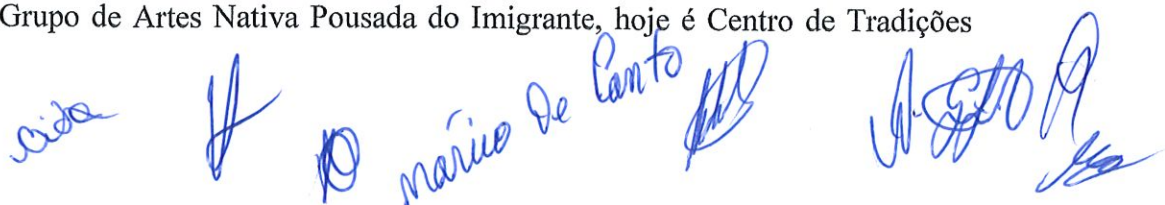 Grupo de Artes Nativa Pousada do Imigrante, hoje é Centro de Tradições
cida
Mário De Canto